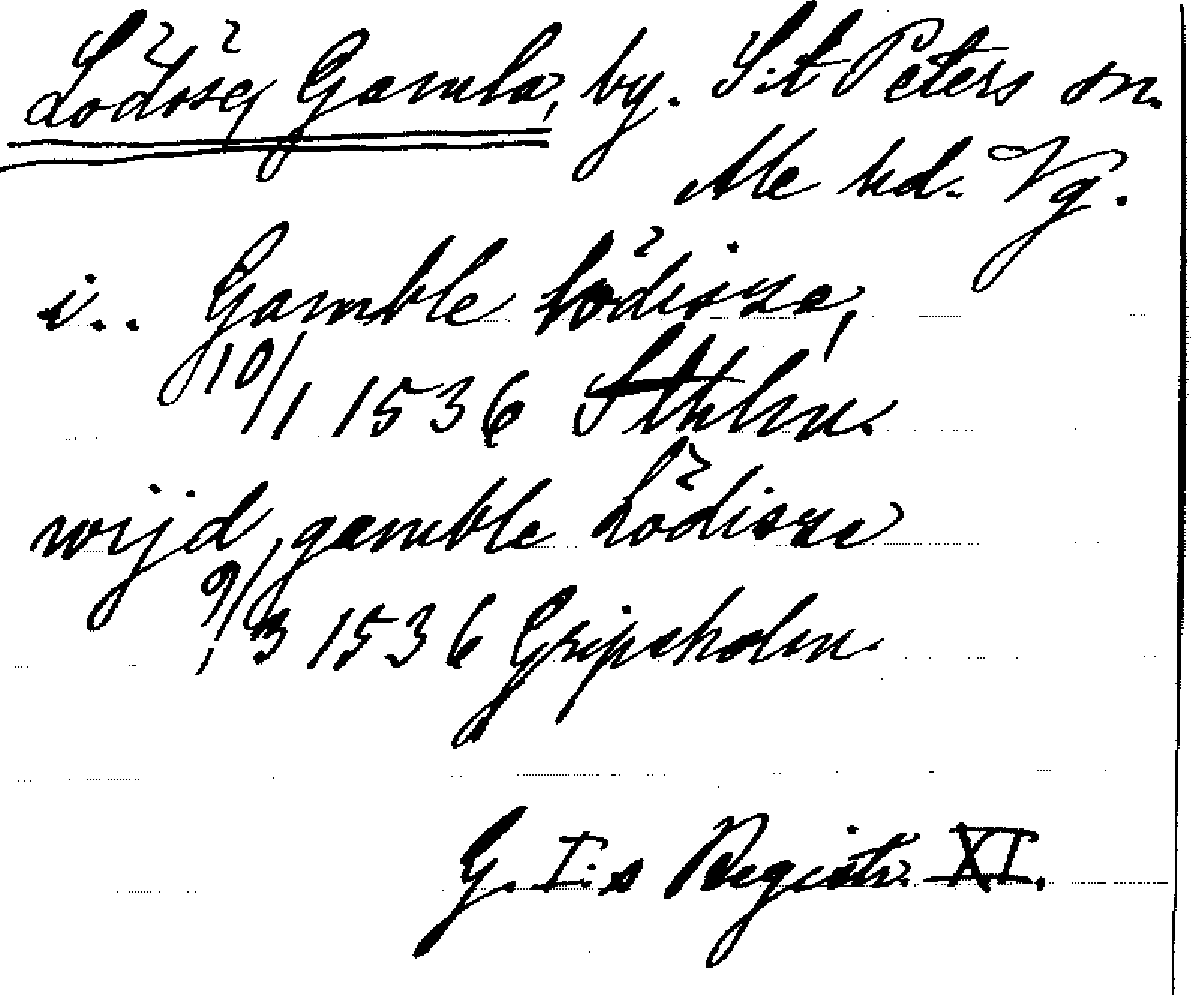 Lödöse, Gamla, by. S:t Peters sn.
Ale hd. Vg.
i.. Gamble Lödisze,
10/1 1536 Sthlm.
wijd gamble Lödisze
9/3 1536 Gripsholm
G. I:s Registr. XI.